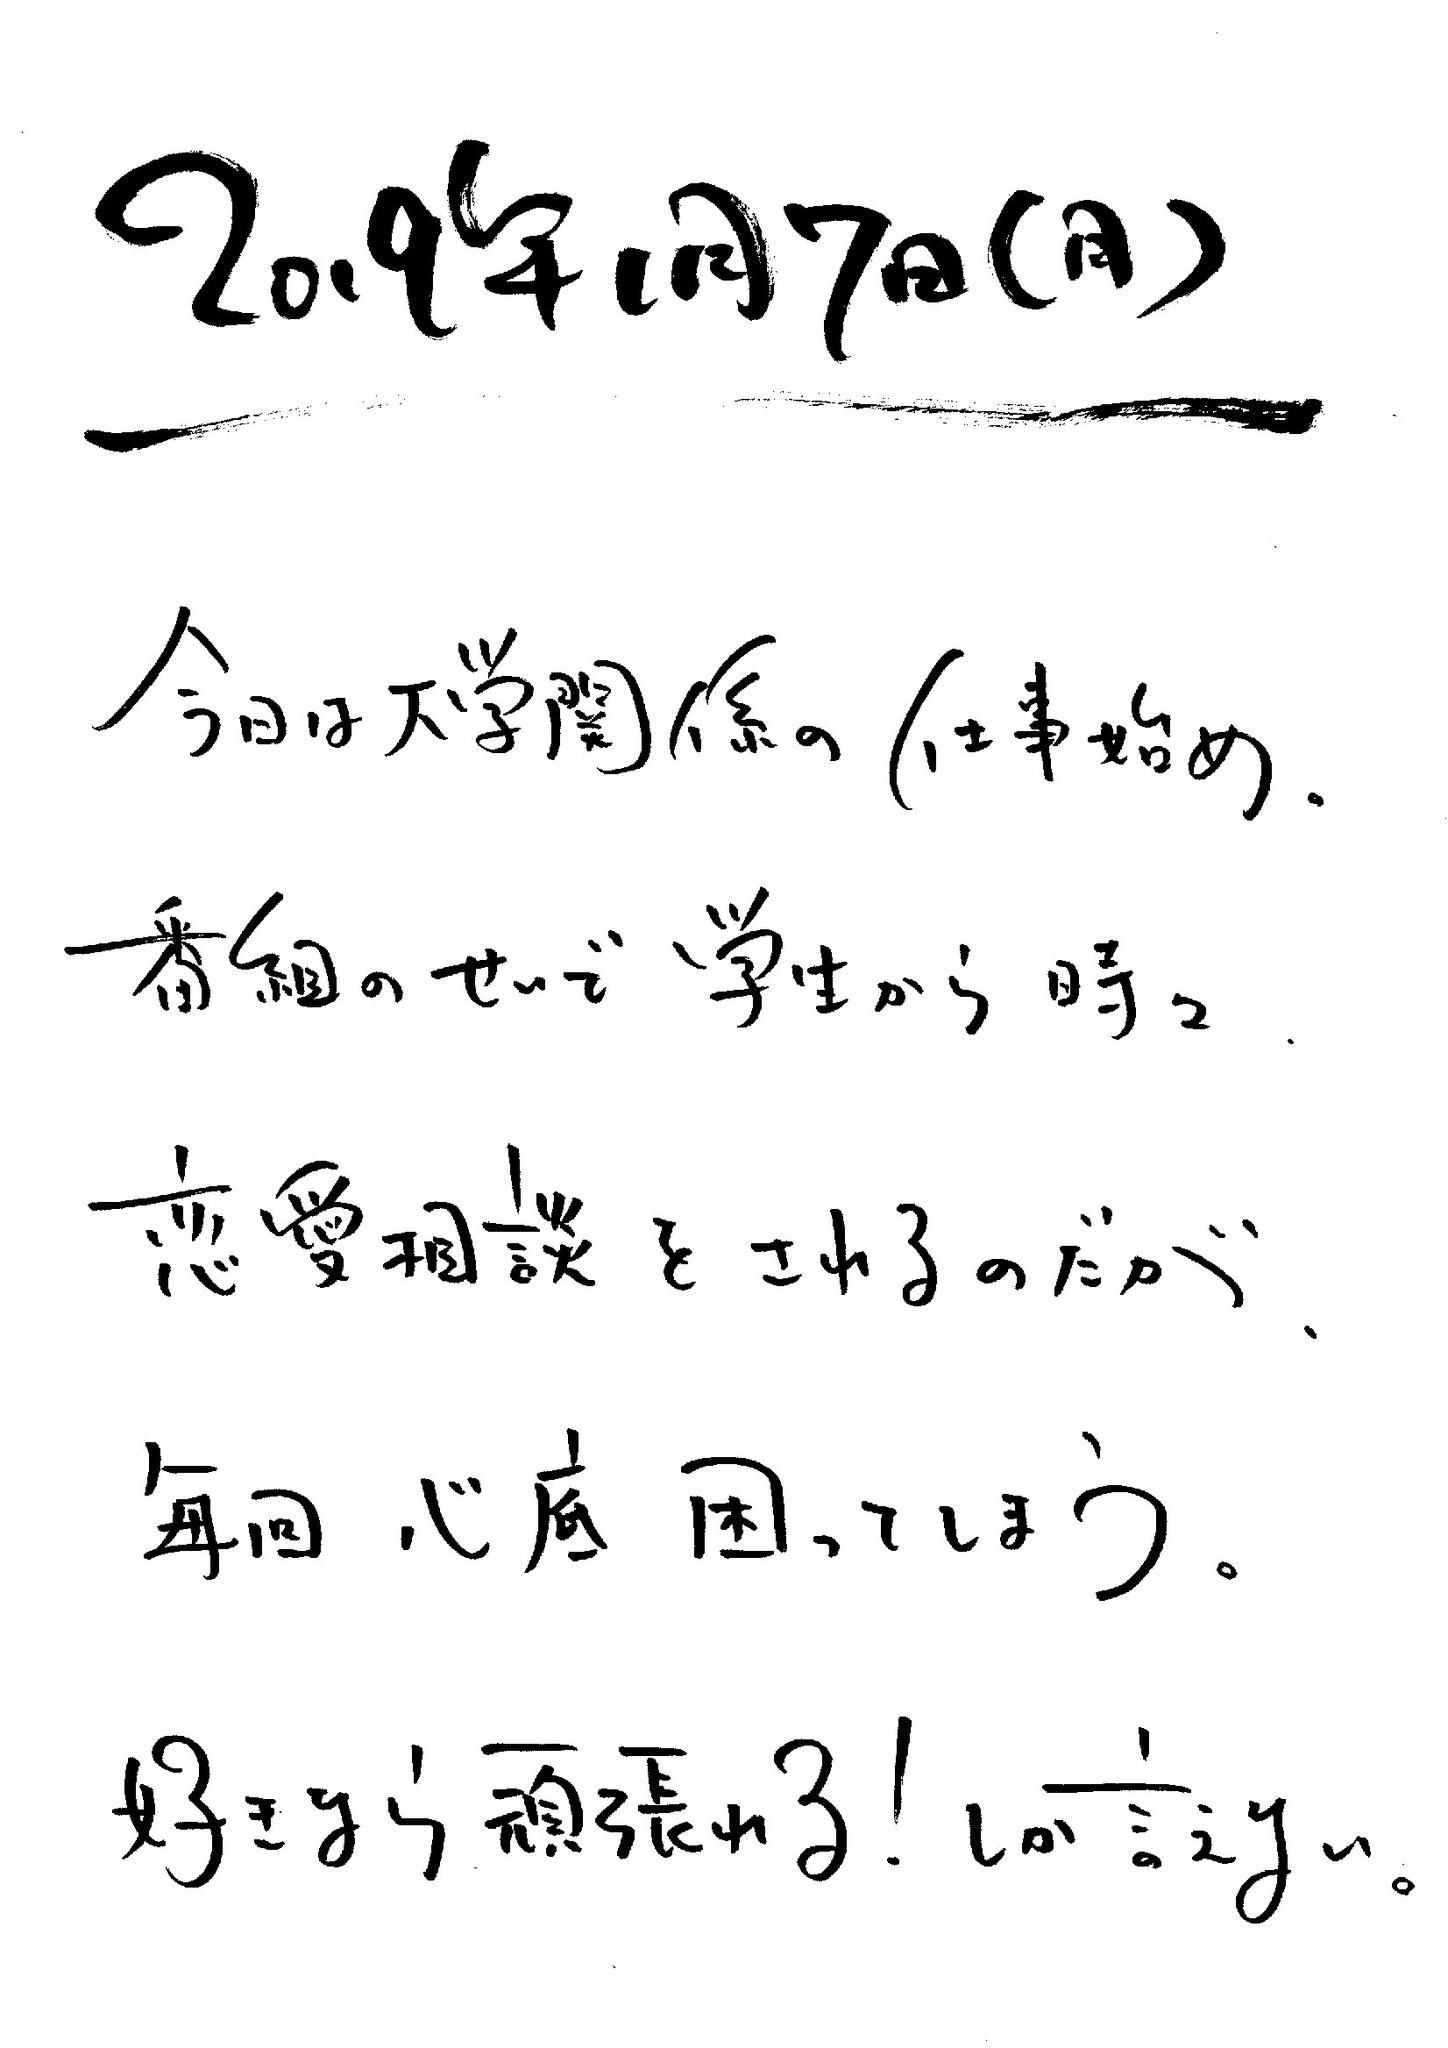 2019年1月7日(月)
今日は大学関係の仕事始め.
番組のせいで学生から時々
恋愛相談をされるのだが、
毎回心底困ってしまう。
好きなら頑張れる!しか言えない。